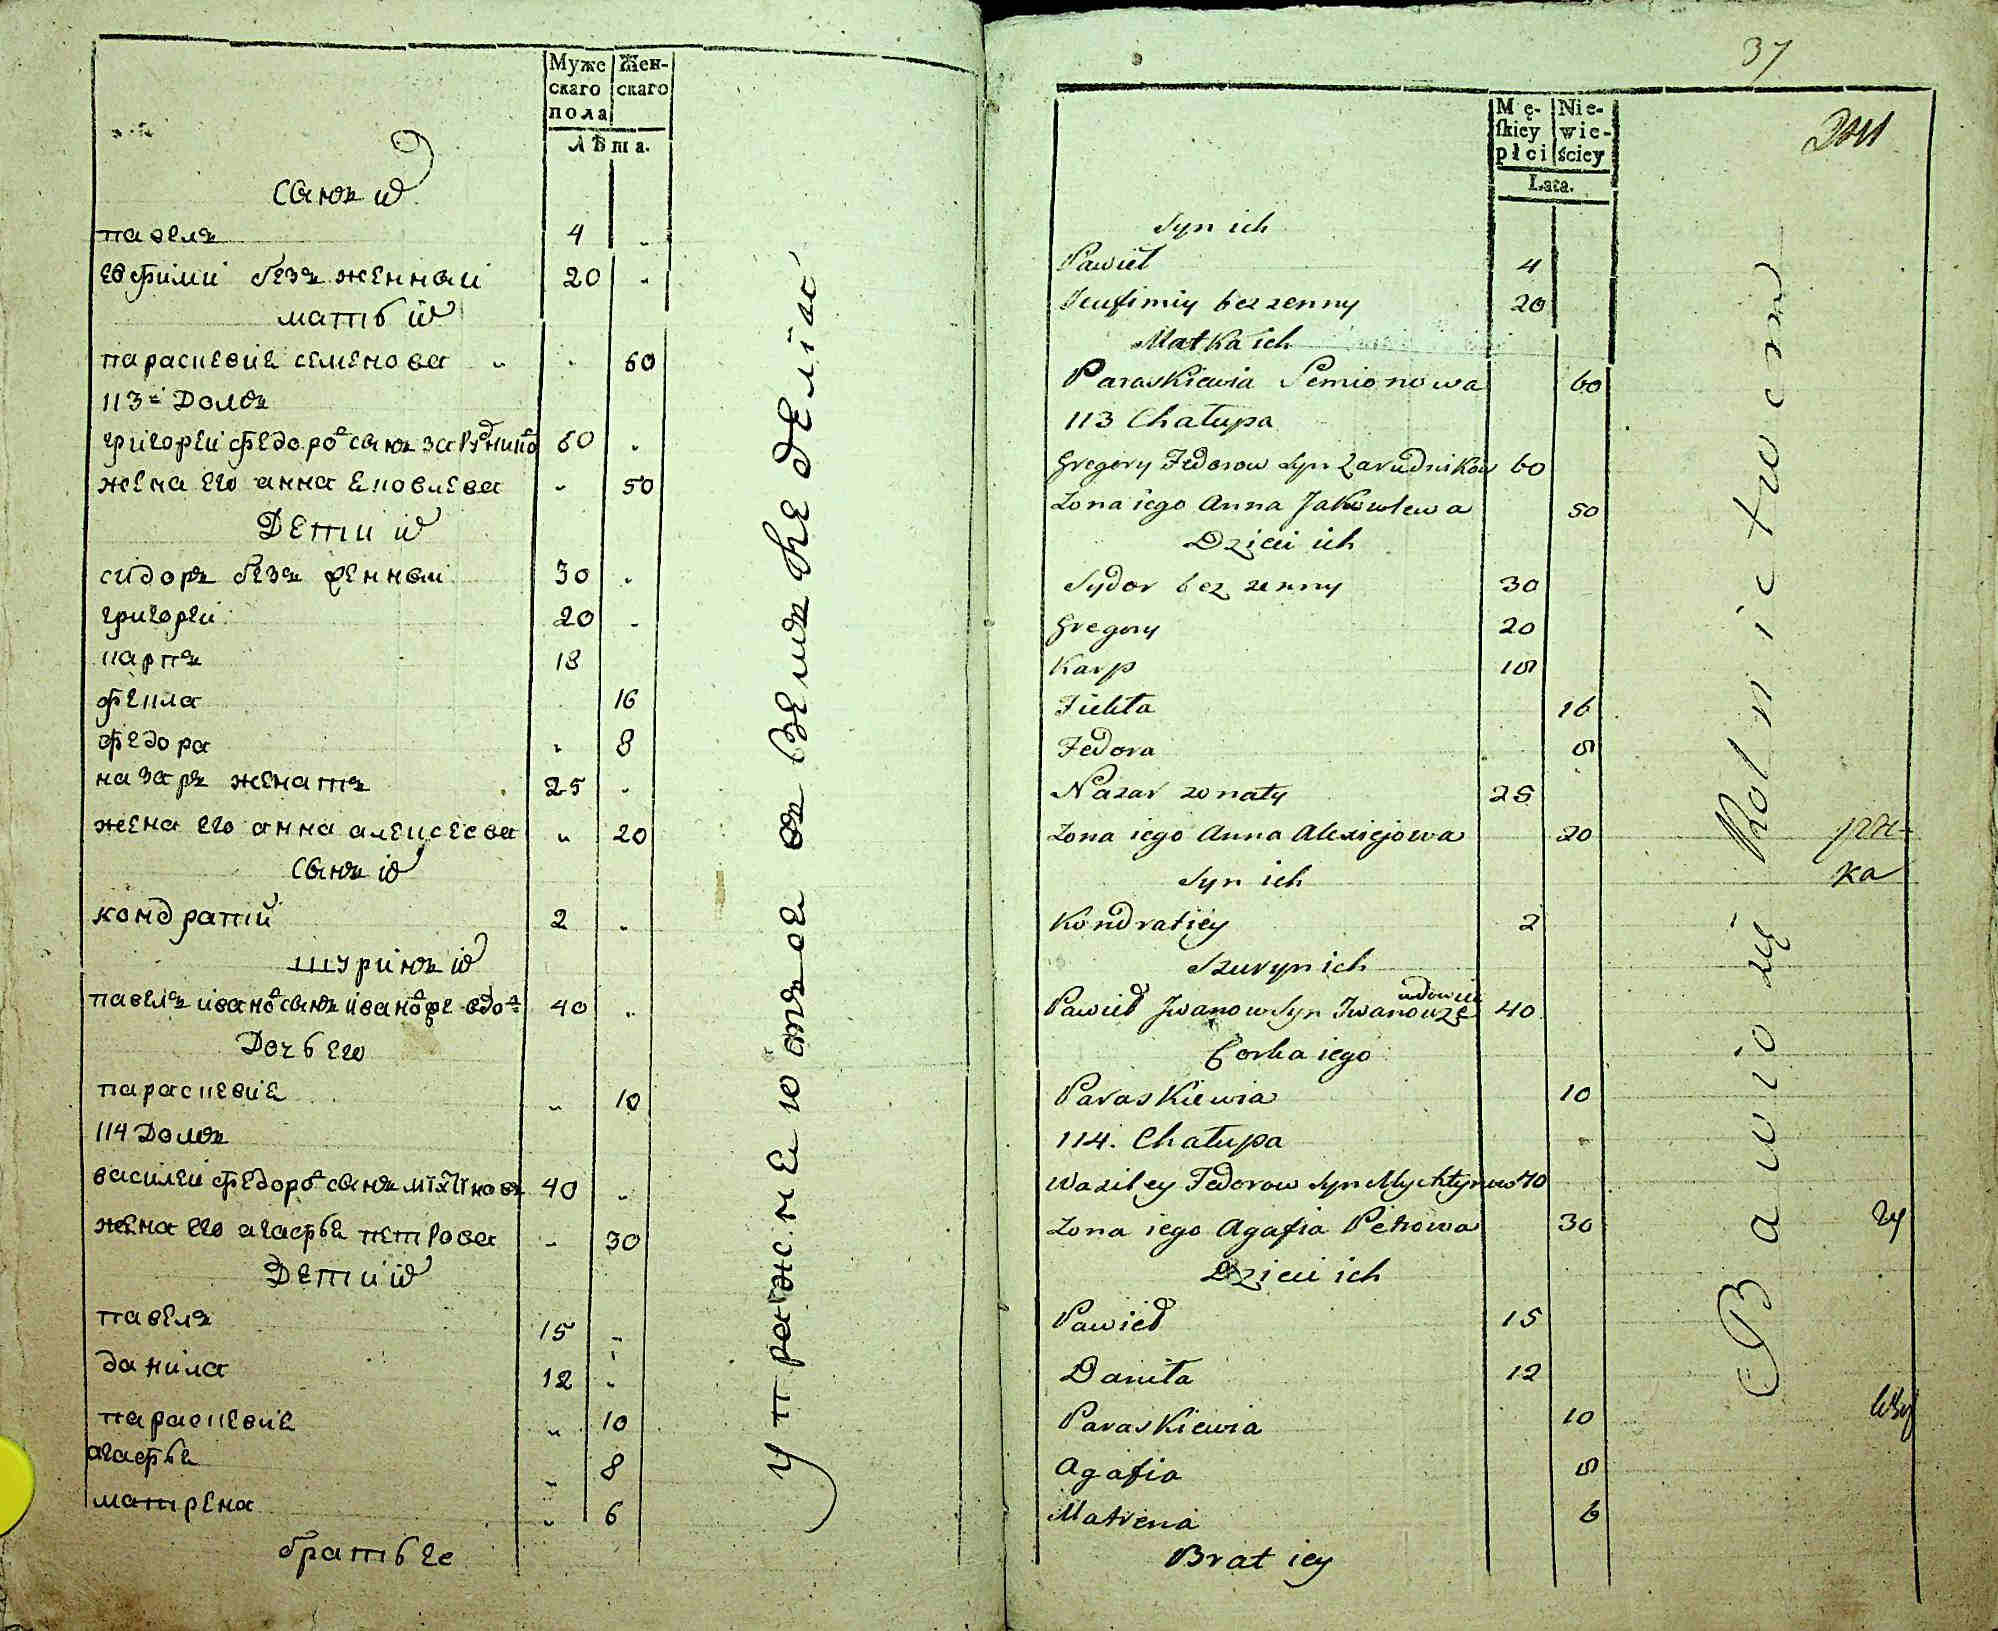 Муже
скаго
пола
Жен-
скаго
Лѣта.
сынъ их
павелъ 4 "
евфимий безъ женный 20 "
мать их
параскевие семенова " " 60
113 = Домъ
григорей федоров сынъ зарудников 60 "
жена его анна яковлева " 50
Дети их
сидоръ безъ женный 30 "
григорей 20 "
карпъ 18
фекла 16
федора " 8
назаръ женатъ 25 "
жена его анна алексеева " 20
сынъ их
кондратий 2 "
шуринъ их
павелъ иванов сынъ иванов 40 "
Дочь его
параскевие " 10
114 Домъ
василей федоров сынъ 40 "
жена его агафье петрова " 30
Дети их
павелъ 15 "
данила 12 "
параскевие " 10
агафье " 8
матрена " 6
брать ее
упражнеются въ земледелиї
37
Mę-
ſkiey
płci
Nie-
wie-
ściey
Lata.
Dom
Syn ich
Pawieł 4
Jeufimiy bez zenny 20
Matka ich
Paraskiewia Semionowa 60
113 Chałupa
Gregory Fedorow Syn Zarudnikow 60
Zona iego Anna Jakowlewa 50
Dzieci ich
Sydor bez zenny 30
Gregory 20
Karp 18
Fiekła 16
Fedora 8
Nazar zonaty 25
Zona iego Anna Alexiejowa 20
Syn ich
Kondratiey 2
Szuryn ich
udowiec
Pawieł Jwanow Syn Jwanow 40
Corka iego
Paraskiewia 10
114. Chałupa
Wasiley Fedorow Syn 40
Zona iego Agafia Petrowa 30
Dzieci ich
Pawieł 15
Daniła 12
Paraskiewia 10
Agafia 8
Matrena 6
Brat iey
Bawio się Rolnictwem
ka